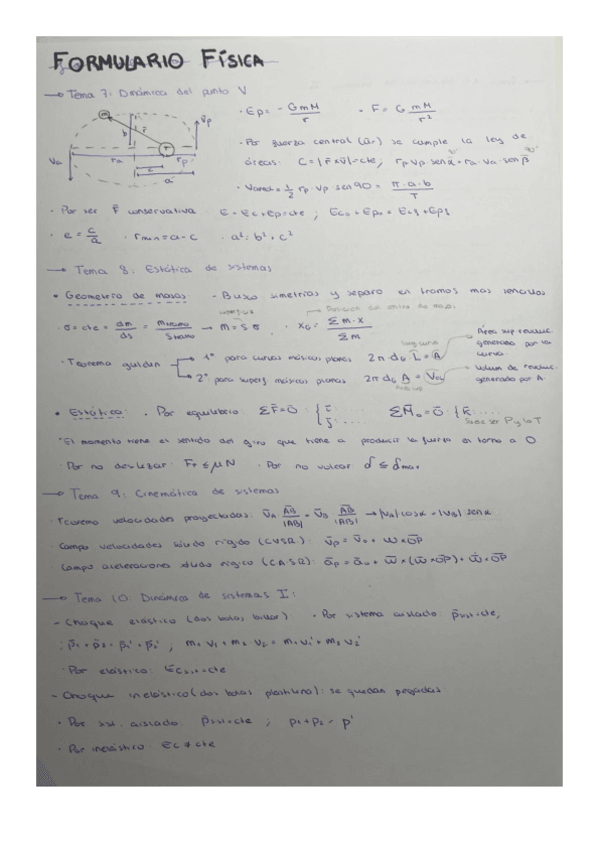 FORMULARIO FÍSICA
→ Tema 7: Dinámica del punto V
· Ep = - GmM/r · F = G mM/r²
· Por fuerza central (ūr) se cumple la ley de
áreas: C = |r̄ x v̄| = cte, rp·vp·senα = ra·va·senβ
· Vareol = 1/2 rp·vp·sen90 = π·a·b/T
m r̄ b T v̄p v̄a ra rp c a
· Por ser F̄ conservativa: E = Ec + Ep = cte ; Eco + Epo = Ecf + Epf
· e = c/a · rmin = a - c · a² = b² + c²
→ Tema 8: Estática de sistemas
• Geometría de masas: - Busco simetrías y separo en tramos mas sencillos
· σ = cte = dm/ds = → m = S·σ · xG = Σm·x/Σm
· Teorema guldin 1º para curvas másicas planas 2π dG L = A
2º para superf másicas planas 2π dG A = Vol
Área sup revoluc. generada por la curva.
Volum de revoluc. generado por A.
• Estática: · Por equilibrio: ΣF̄ = 0̄ : { ī: ..... j̄: ..... ΣM̄o = 0̄ : { k̄: .....
*El momento tiene el sentido del giro que tiene a producir la fuerza en torno a O
· Por no deslizar: Fr ≤ μN · Por no volcar d ≤ dmax
→ Tema 9: Cinemática de sistemas
· Teorema velocidades proyectadas: v̄A · AB/|AB| = v̄B · AB/|AB| → |vA| cosα = |vB| senα
· Campo velocidades sólido rígido (C.V.S.R.): v̄p = v̄o + ω x OP
· Campo aceleraciones sólido rígido (C.A.S.R): āp = āo + ω̄ x (ω̄ x OP) + ω̇ x OP
→ Tema 10: Dinámica de sistemas I:
- Choque elástico (dos bolas billar): · Por sistema aislado: p̄sist = cte;
; p̄1 + p̄2 = p̄1' + p̄2' ; m1 v1 + m2 v2 = m1 v1' + m2 v2'
· Por elástico: Ecsist = cte
- Choque inelástico (dos bolas plastilina): se quedan pegadas
· Por sist. aislado: p̄sist = cte ; p1 + p2 = p'
· Por inelástico: Ec ≠ cte